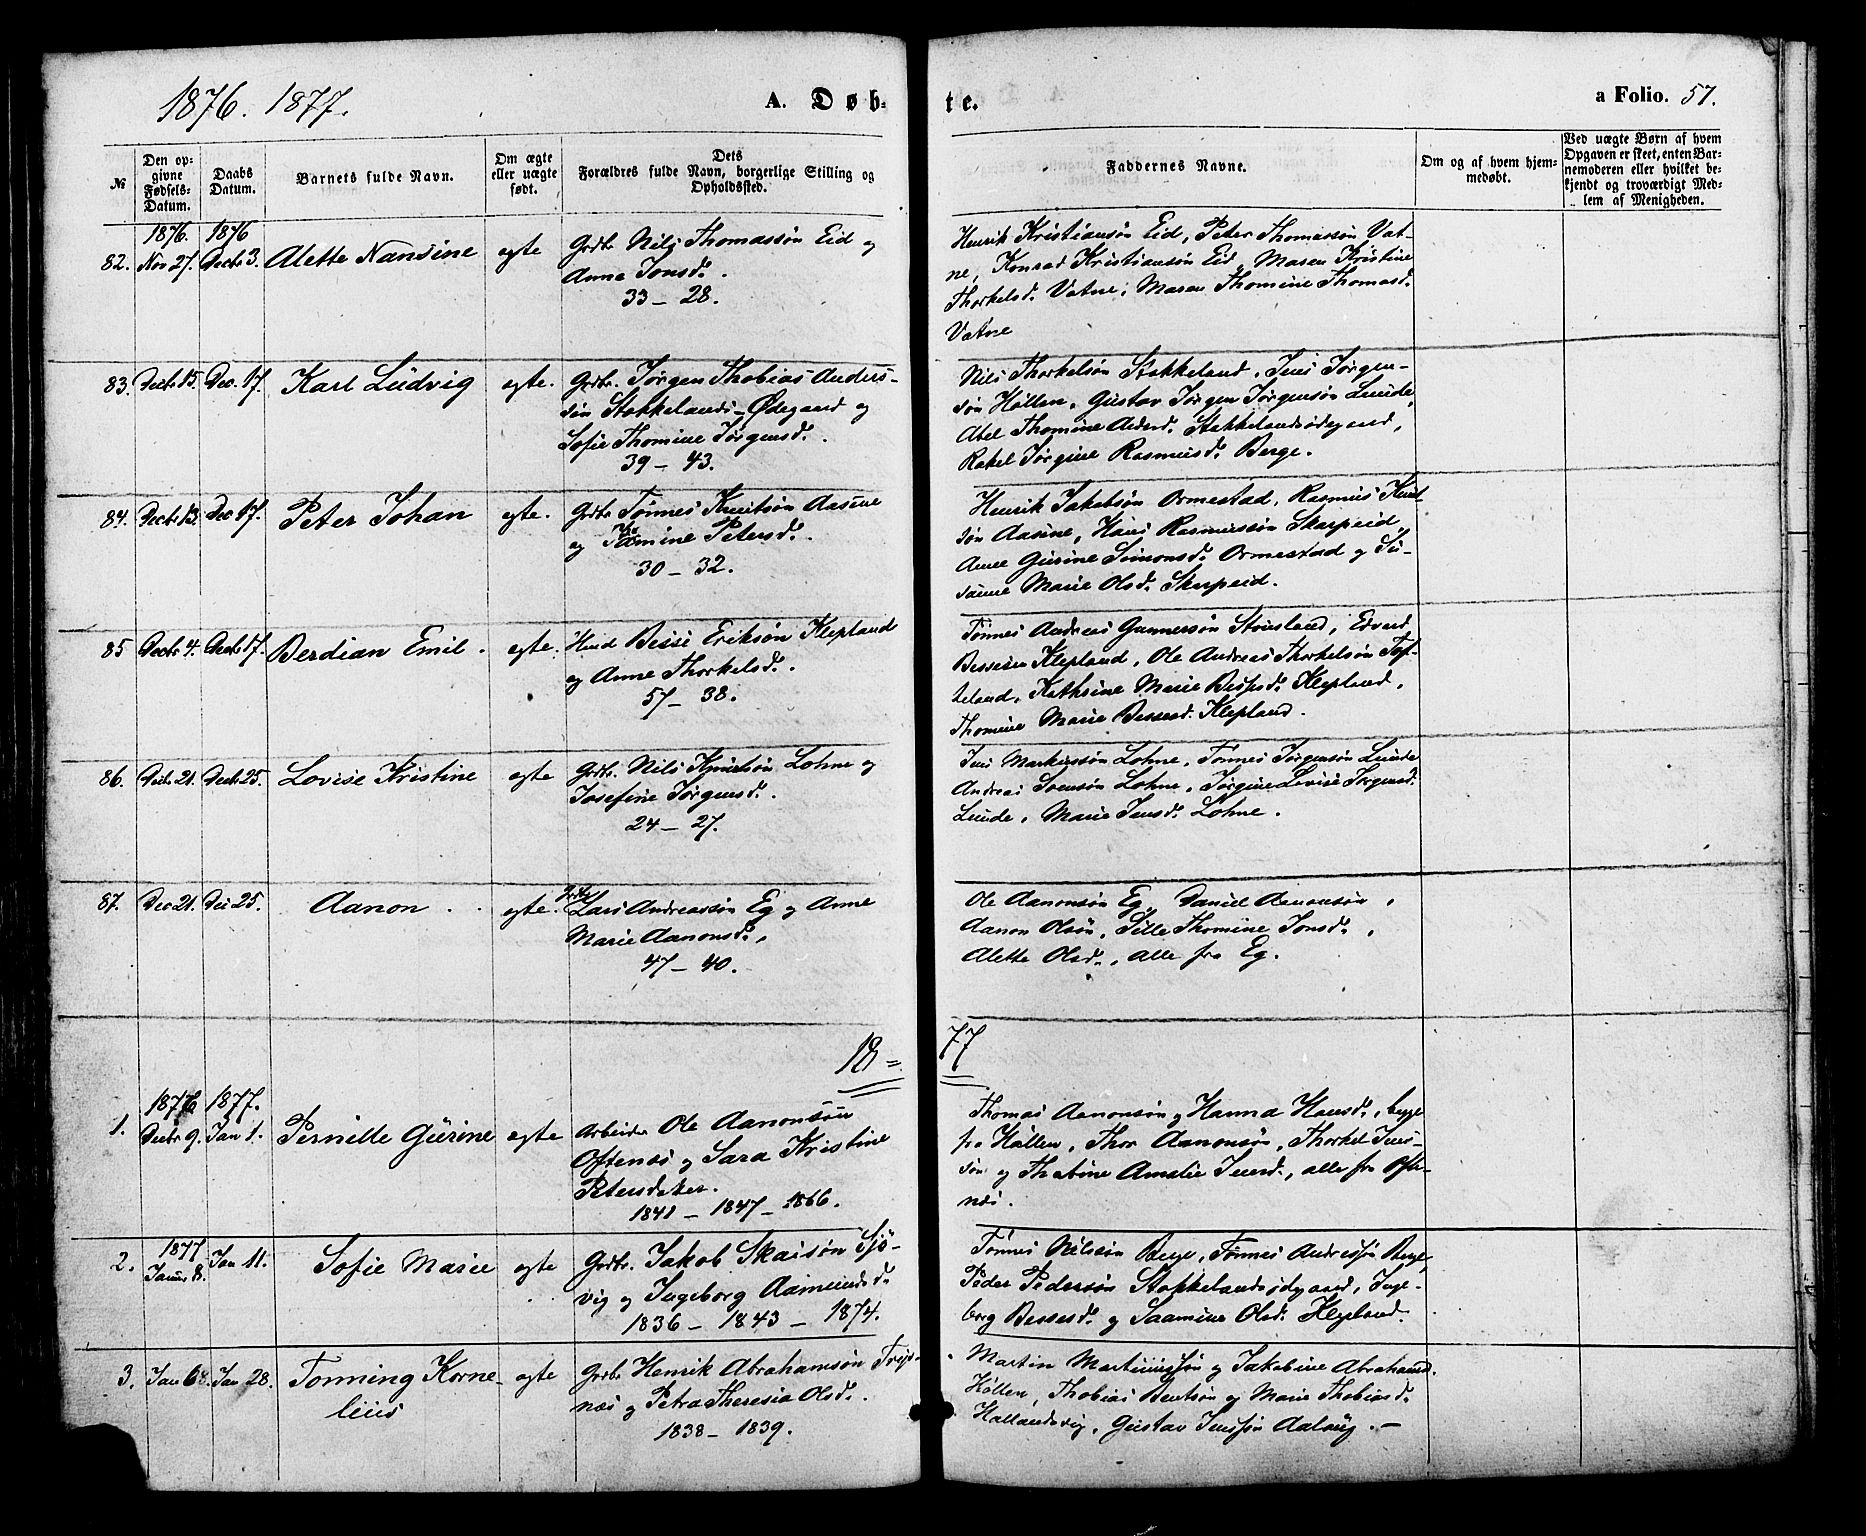 1876. 1877.
A. Døb-
te.
a Folio. 57.
№
Den op-
givne
Fødsels-
Datum.
Daabs
Datum.
Barnets fulde Navn.
Om ægte
eller uægte
født.
Dets
Forældres fulde Navn, borgerlige Stilling og
Opholdssted.
Faddernes Navne.
Om og af hvem hjem-
medøbt.
Ved uægte Børn af hvem
Opgaven er skeet, enten Bar-
nemoderen eller hvilket be-
kjendt og troværdigt Med-
lem af Menigheden.
1876. 1876
82. Nov 27. Decbr 3. Alette Nansine egte
Grdbr. Nils Thomassøn Eid og
Anna Jonsd.
33 – 28.
Henrik Kristiansøn Eid, Peter Thomassøn Vat-
ne, Konrad Kristiansøn Eid, Maren Kristine
Thorkelsd. Vatne, Maren Thomine Thomasd.
Vatne
83. Decbr. 15. Dec. 17. Karl Ludvig egte.
Grdbr. Jørgen Thobias Anders-
søn Stokkelands-Ødegaard og
Sofie Thomine Jørgensd.
39 – 43.
Nils Thorkelsøn Stokkeland, Jens Jørgen-
søn Høllen, Gustav Jørgen Jørgensøn Lunde,
Abel Thomine Anders. Stokkelandsødegaard,
Rakel Jørgine Rasmusd. Berge.
84. Decbr. 13. Dec 17. Peter Johan egte.
Grdbr. Tønnes Knutsøn Aasene
og Tomine Petersd.
30 – 32.
Henrik Jakobsøn Ormestad, Rasmus Knut-
søn Aasene, Hans Rasmussøn Skarpeid,
Anne Gurine Simonsd. Ormestad og Su-
sanne Marie Olsd. Skarpeid.
85 Decbr. 4. Decbr. 17. Berdian Emil. egte.
Husmd Besse Eriksøn Klepland
og Anne Thorkelsd.
57 – 38.
Tønnes Andreas Gunnersøn Stousland, Edvard
Bessesen Klepland, Ole Andreas Thorkelsøn Tofte-
land, Kathrine Marie Bessesd. Klepland,
Thomine Marie Bessesd. Klepland.
86. Decbr. 21. Decbr. 25. Lovise Kristine egte
Grdbr. Nils Knutsøn Lohne og
Josefine Jørgensd.
24 – 27.
Jens Markussøn Lohne, Tønnes Jørgensøn Lunde
Andreas Svensøn Lohne, Jørgine Lovise Jørgensd.
Lunde, Marie Jensd. Lohne.
87. Dec 21. Dec 25. Aanon. egte.
Grdbr
Lars Andreassøn Eg og Anne
Marie Aanonsd.,
47 – 40.
Ole Aanonsøn Eg, Daniel Aanonsøn,
Aanon Olsøn, Sille Thomine Jonsd.,
Alette Olsd., alle fra Eg.
18=
77
1876 1877.
1. Decbr 9. Jan 1. Pernille Gurine egte
Arbeider Ole Aanonsøn
Oftenæs og Sara Kristine
Petersdatter.
1841 – 1847 – 1866.
Thomas Aanonsøn og Hanna Hansd., begge
fra Høllen, Thor Aanonsøn, Thorkel Jens-
søn og Thabine Amalie Jensd., alle fra Ofte-
næs.
1877
2. Januar 8. Jan 11. Sofie Marie egte
Grdbr. Jakob Skaisøn Sjø-
vig og Ingeborg Aamundsd.
1836 – 1843 – 1874.
Tønnes Nilssøn Berge, Tønnes Andreassøn Berge,
Peder Pedersøn Stokkelandsødgaard, Inge-
borg Bessesd. og Saamine Olsd. Klepland.
3. Jan 6. Jan 28. Tønning Korne-
lius egte
Grdbr Henrik Abrahamsøn Trojs-
næs og Petra Theresia Olsd.
1838 – 1839.
Martin Martinussøn og Jakobine Abrahamsd.
Høllen, Thobias Bentsøn og Marie Thobiasd.
Hallandsvig, Gustav Jenssøn Aaløug. –